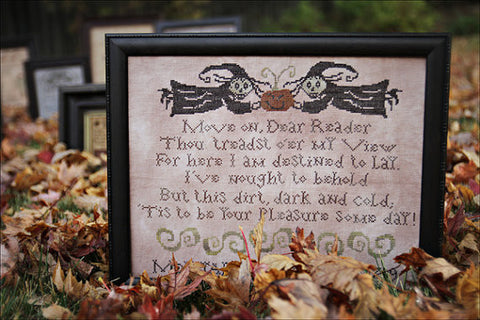 Move on, Dear Reader
Thou treadst o'er my View
For here I am destined to lay.
I've nought to behold
But this dirt, dark and cold;
'Tis to be your Pleasure some day!